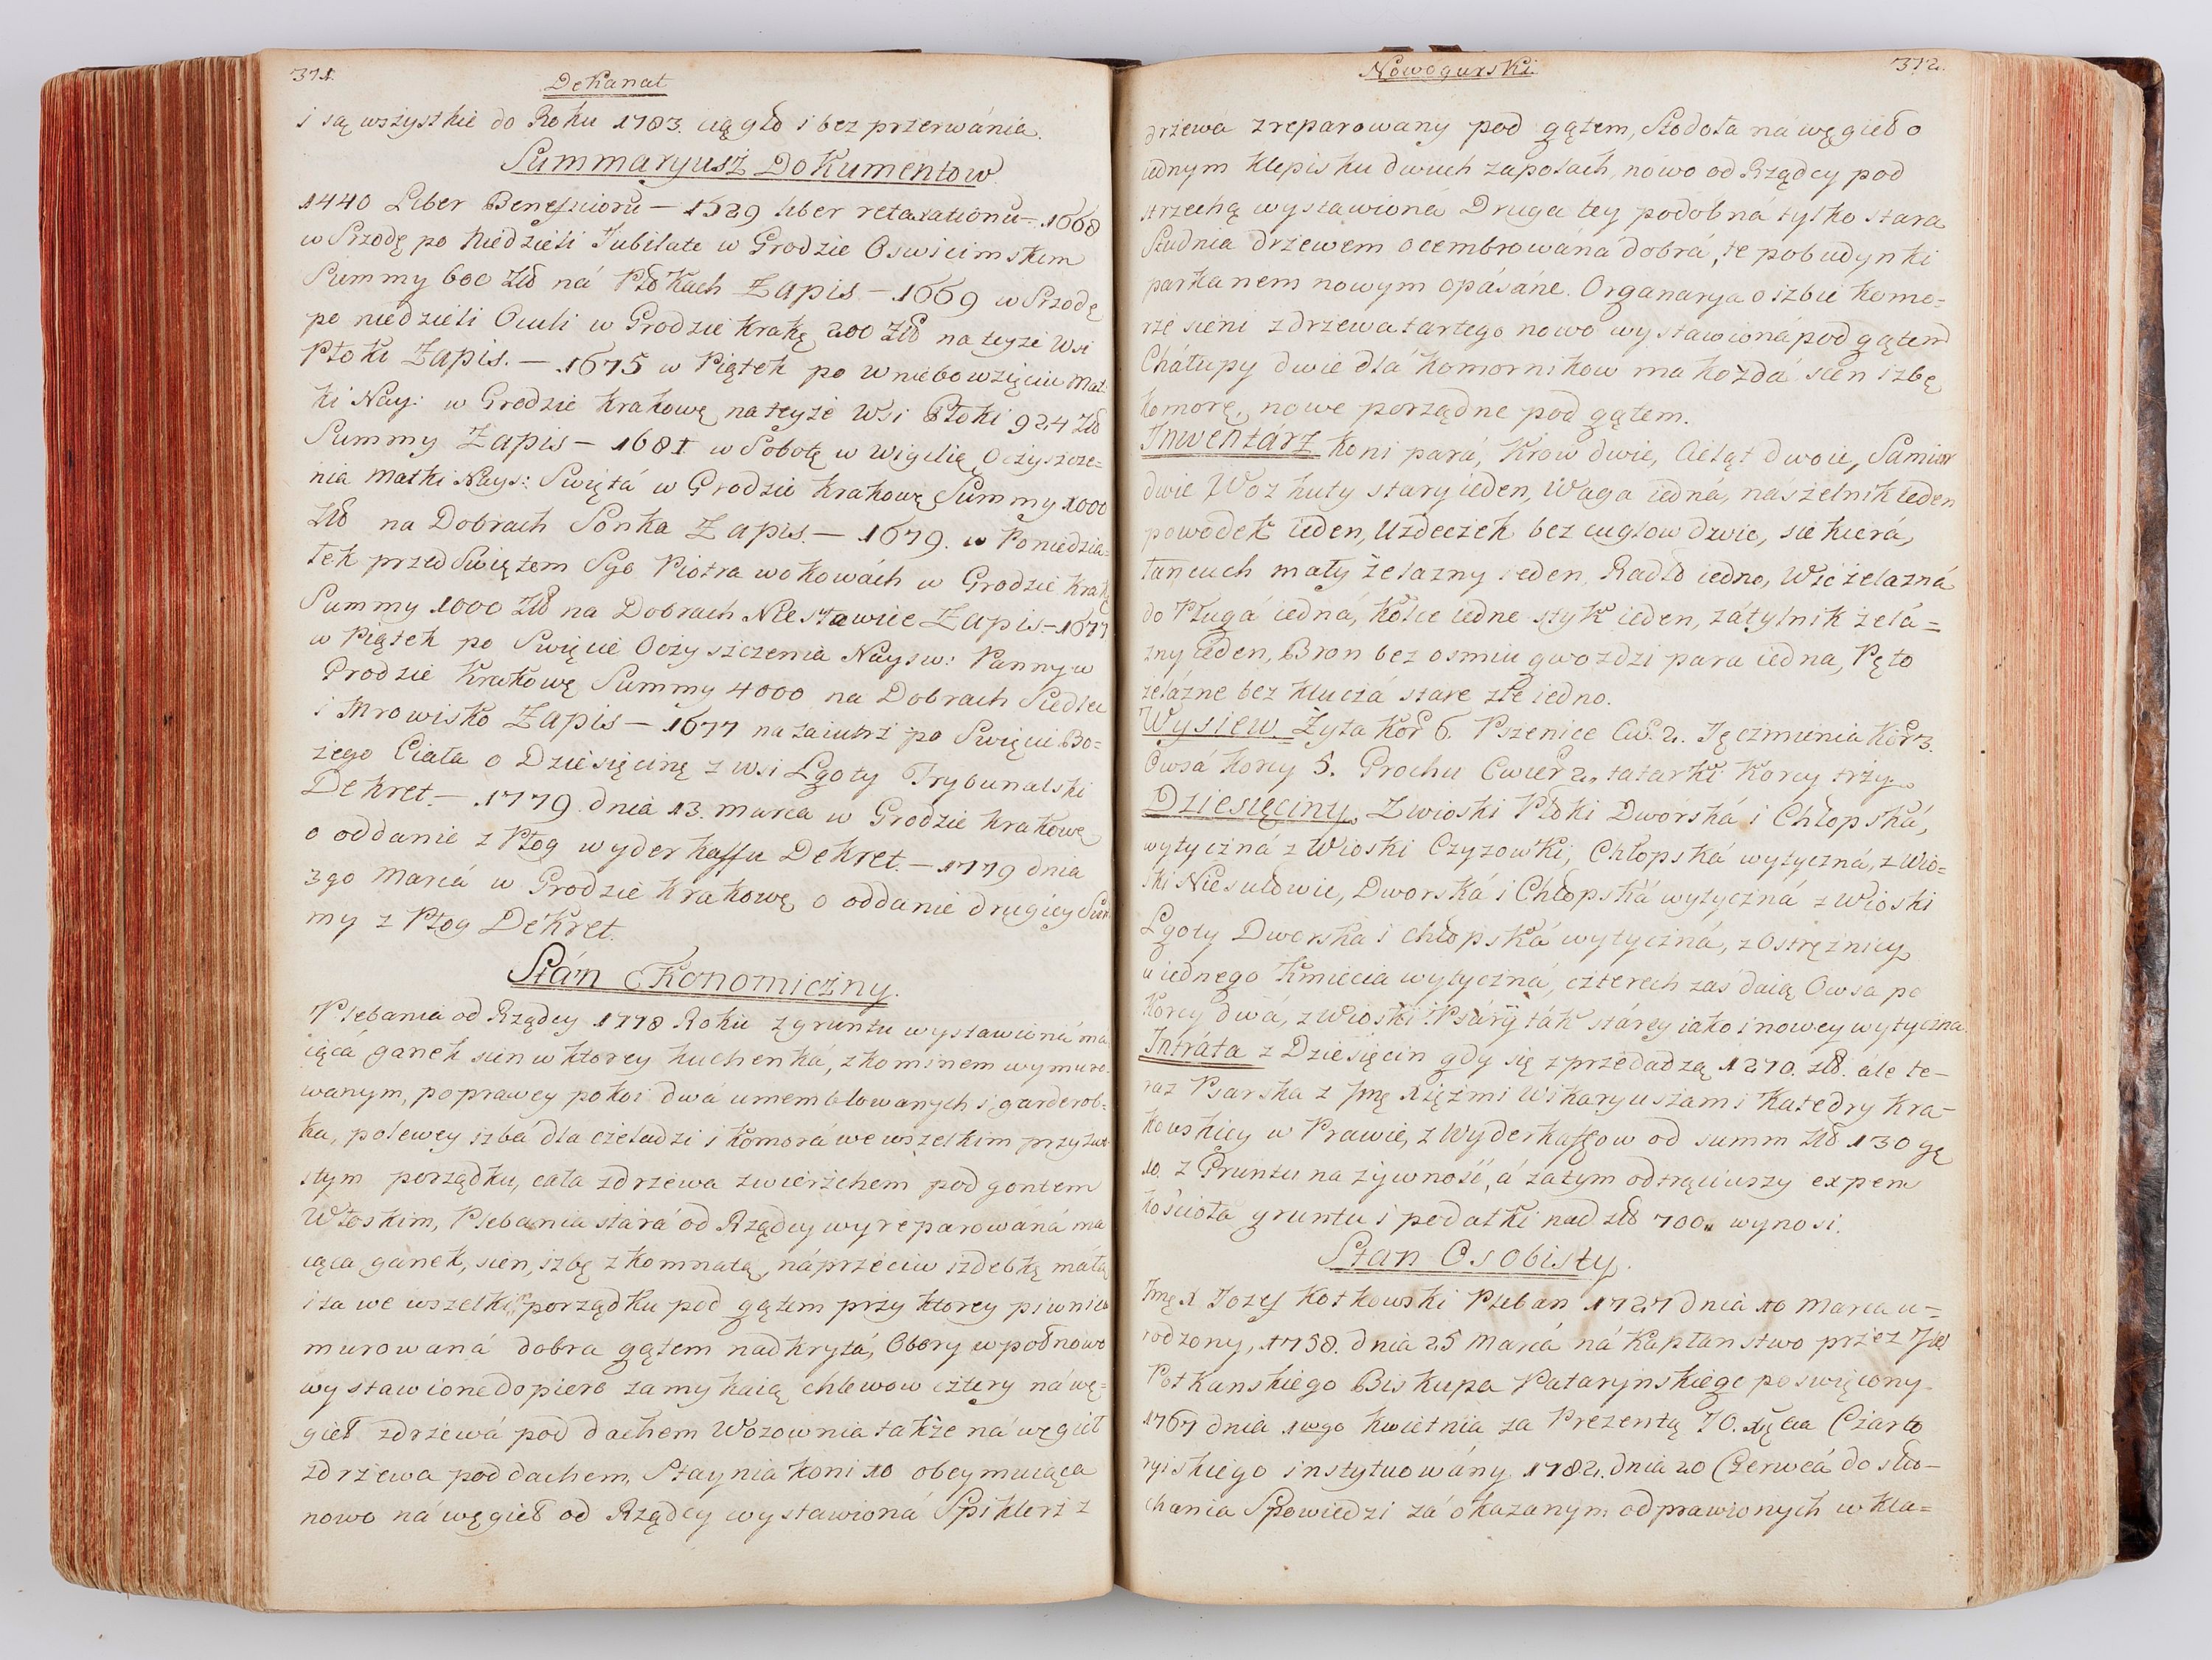 371.
Dekanat
i są wszystkie do Roku 1783. ciągło i bez przerwánia.
Summaryusz Dokumentow.
1440 Liber Beneficioru — 1529 liber retaxationu — 1668
w Srzodę po Niedzieli Jubilate w Grodzie Oswiecimskim
Summy 600 Złł ná Płokach Zapis — 1669 w Srzodę
po niedzieli Oculi w Grodzie Krakę 200 Złł na teyże Wsi
Płoki Zapis. — 1675 w Piątek po Wniebowzięciu Mat:
ki Nay: w Grodzie Krakowę na teyże Wsi Płoki 924 Złł
Summy Zapis — 1681 w Sobotę w Wigilię Oczyszcze=
nia Matki Nays: Swiętá w Grodzie Krakowę Summy 1000
Złł na Dobrach Sonka Zapis. — 1679. w Poniedzia=
tek przed Swiętem Sgo Piotra wokowách w Grodzie Krakę
Summy 1000 Złł na Dobrach Niestawice Zapis — 1677
w Piątek po Swięcie Oczyszczenia Naysw: Panny w
Grodzie Krakowę Summy 4000 na Dobrach Siedlec
i Mrowisko Zapis — 1677 na zaiutrz po Swięcie Bo=
żego Ciała o Dziesięcinę z wsi Lgoty Trybunalski
Dekret. — 1779. dnia 13. Marca w Grodzie Krakowę
o oddanie z Płog wyderkaffu Dekret. — 1779 dnia
3go Marcá w Grodzie Krakowę o oddanie drugiey Sum
my z Płog Dekret.
Stán Ekonomiczny.
Plebania od Rządcy 1778 Roku z gruntu wystawioná má
iącá ganek sien w ktorey kuchenká, z kominem wymuro.
wanym, po prawey pokoi dwá umeblowanych i garderob=
ka, po lewey izbá dla czeladzi i komorá we wszelkim przyzwo
itym porządku, cała z drzewa z wierzchem pod gontem
Włoskim, Plebania stará od Rządcy wyreparowáná ma
iąca ganek, sien, izbę z komnatą, náprzeciw izdebkę małą
i ta we wszelkim porządku pod gątem przy ktorey piwnica
murowaná dobra gątem nadkrytá, Obory wpoł nowo
wystawione dopiero zamykaią chlewow cztery ná wę=
gieł z drzewá pod dachem Wozownia także ná węgieł
z drzewa pod dachem, Staynia koni 10 obeymuiąca
nowo ná węgieł od Rządcy wystawioná Spiklerz z
Nowogurski.
372.
drzewa zreparowany pod gątem, Stodoła ná węgieł o
iednym klepisku dwuch zapołach, nowo od Rządcy pod
strzechą wystawioná Druga tey podobná tylko stara
Studnia drzewem ocembrowáná dobrá, te pobudynki
parkanem nowym opásáne. Organarya o izbie komo=
rze sieni z drzewa tartego nowo wystawioná pod gątem
Cháłupy dwie dlá komornikow ma kożdá sien izbę
komorę, nowe porządne pod gątem.
Inwentárz koni pará, Krow dwie, Cieląt dwoie, Samior
dwie Woz kuty stary ieden, Waga iedná, naszelnik ieden
powodek ieden, Uzdeczek bez cuglow dwie, siekierá,
łancuch mały żelazny ieden, Radło iedno, Wić żelazná
do Pługá iedná, kolce iedne styk ieden, zátylnik żelá=
zny ieden, Bron bez osmiu gwozdzi para iedna, Pęto
żelázne bez kluczá stare złe iedno.
Wysiew. Żyta Kor 6. Pszenice Cw. 2. Jęczmienia Kor 3.
Owsá korcy 5. Grochu Cwier 2, tatarki Korcy trzy.
Dziesięciny. Z wioski Płoki Dworská i Chłopská,
wytyczná z Wioski Czyzowki, Chłopská wytyczná, z Wio=
ski Niesułowic, Dworská i Chłopská wytyczná z Wioski
Lgoty Dworska i chłopská wytyczná, z Ostrężnicy
u iednego Kmiecia wytyczná, czterech zaś daią Owsa po
Korcy dwá, z Wioski Psáry ták stárey iako i nowey wytyczna.
Intráta z Dziesięcin gdy się z przedadzą 1270. złł. ále te=
raz Psarska z Jmę Xiężmi Wikaryuszami Katedry Kra=
kowskiey w Prawie, z Wyderkaffow od summ Złł 130 gę
10. z Gruntu na żywność, á zatym odtrąciwszy expens
kościoła gruntu i podatki nad złł 700. wynosi.
Stan Osobisty.
Jmę X Jozef Kotkowski Pleban 1727 dnia 10 Marca u=
rodzony, 1758. dnia 25 Marcá ná Kapłanstwo przez
Potkanskiego Biskupa Pataryńskiego poswięcony.
1767 dnia 1wgo kwietnia za Prezentą JO. Xęcia Czarto
ryiskiego instytuowány 1782. dnia 20 Czerwcá do słu=
chania Spowiedzi zá okazanym odprawionych w kla=